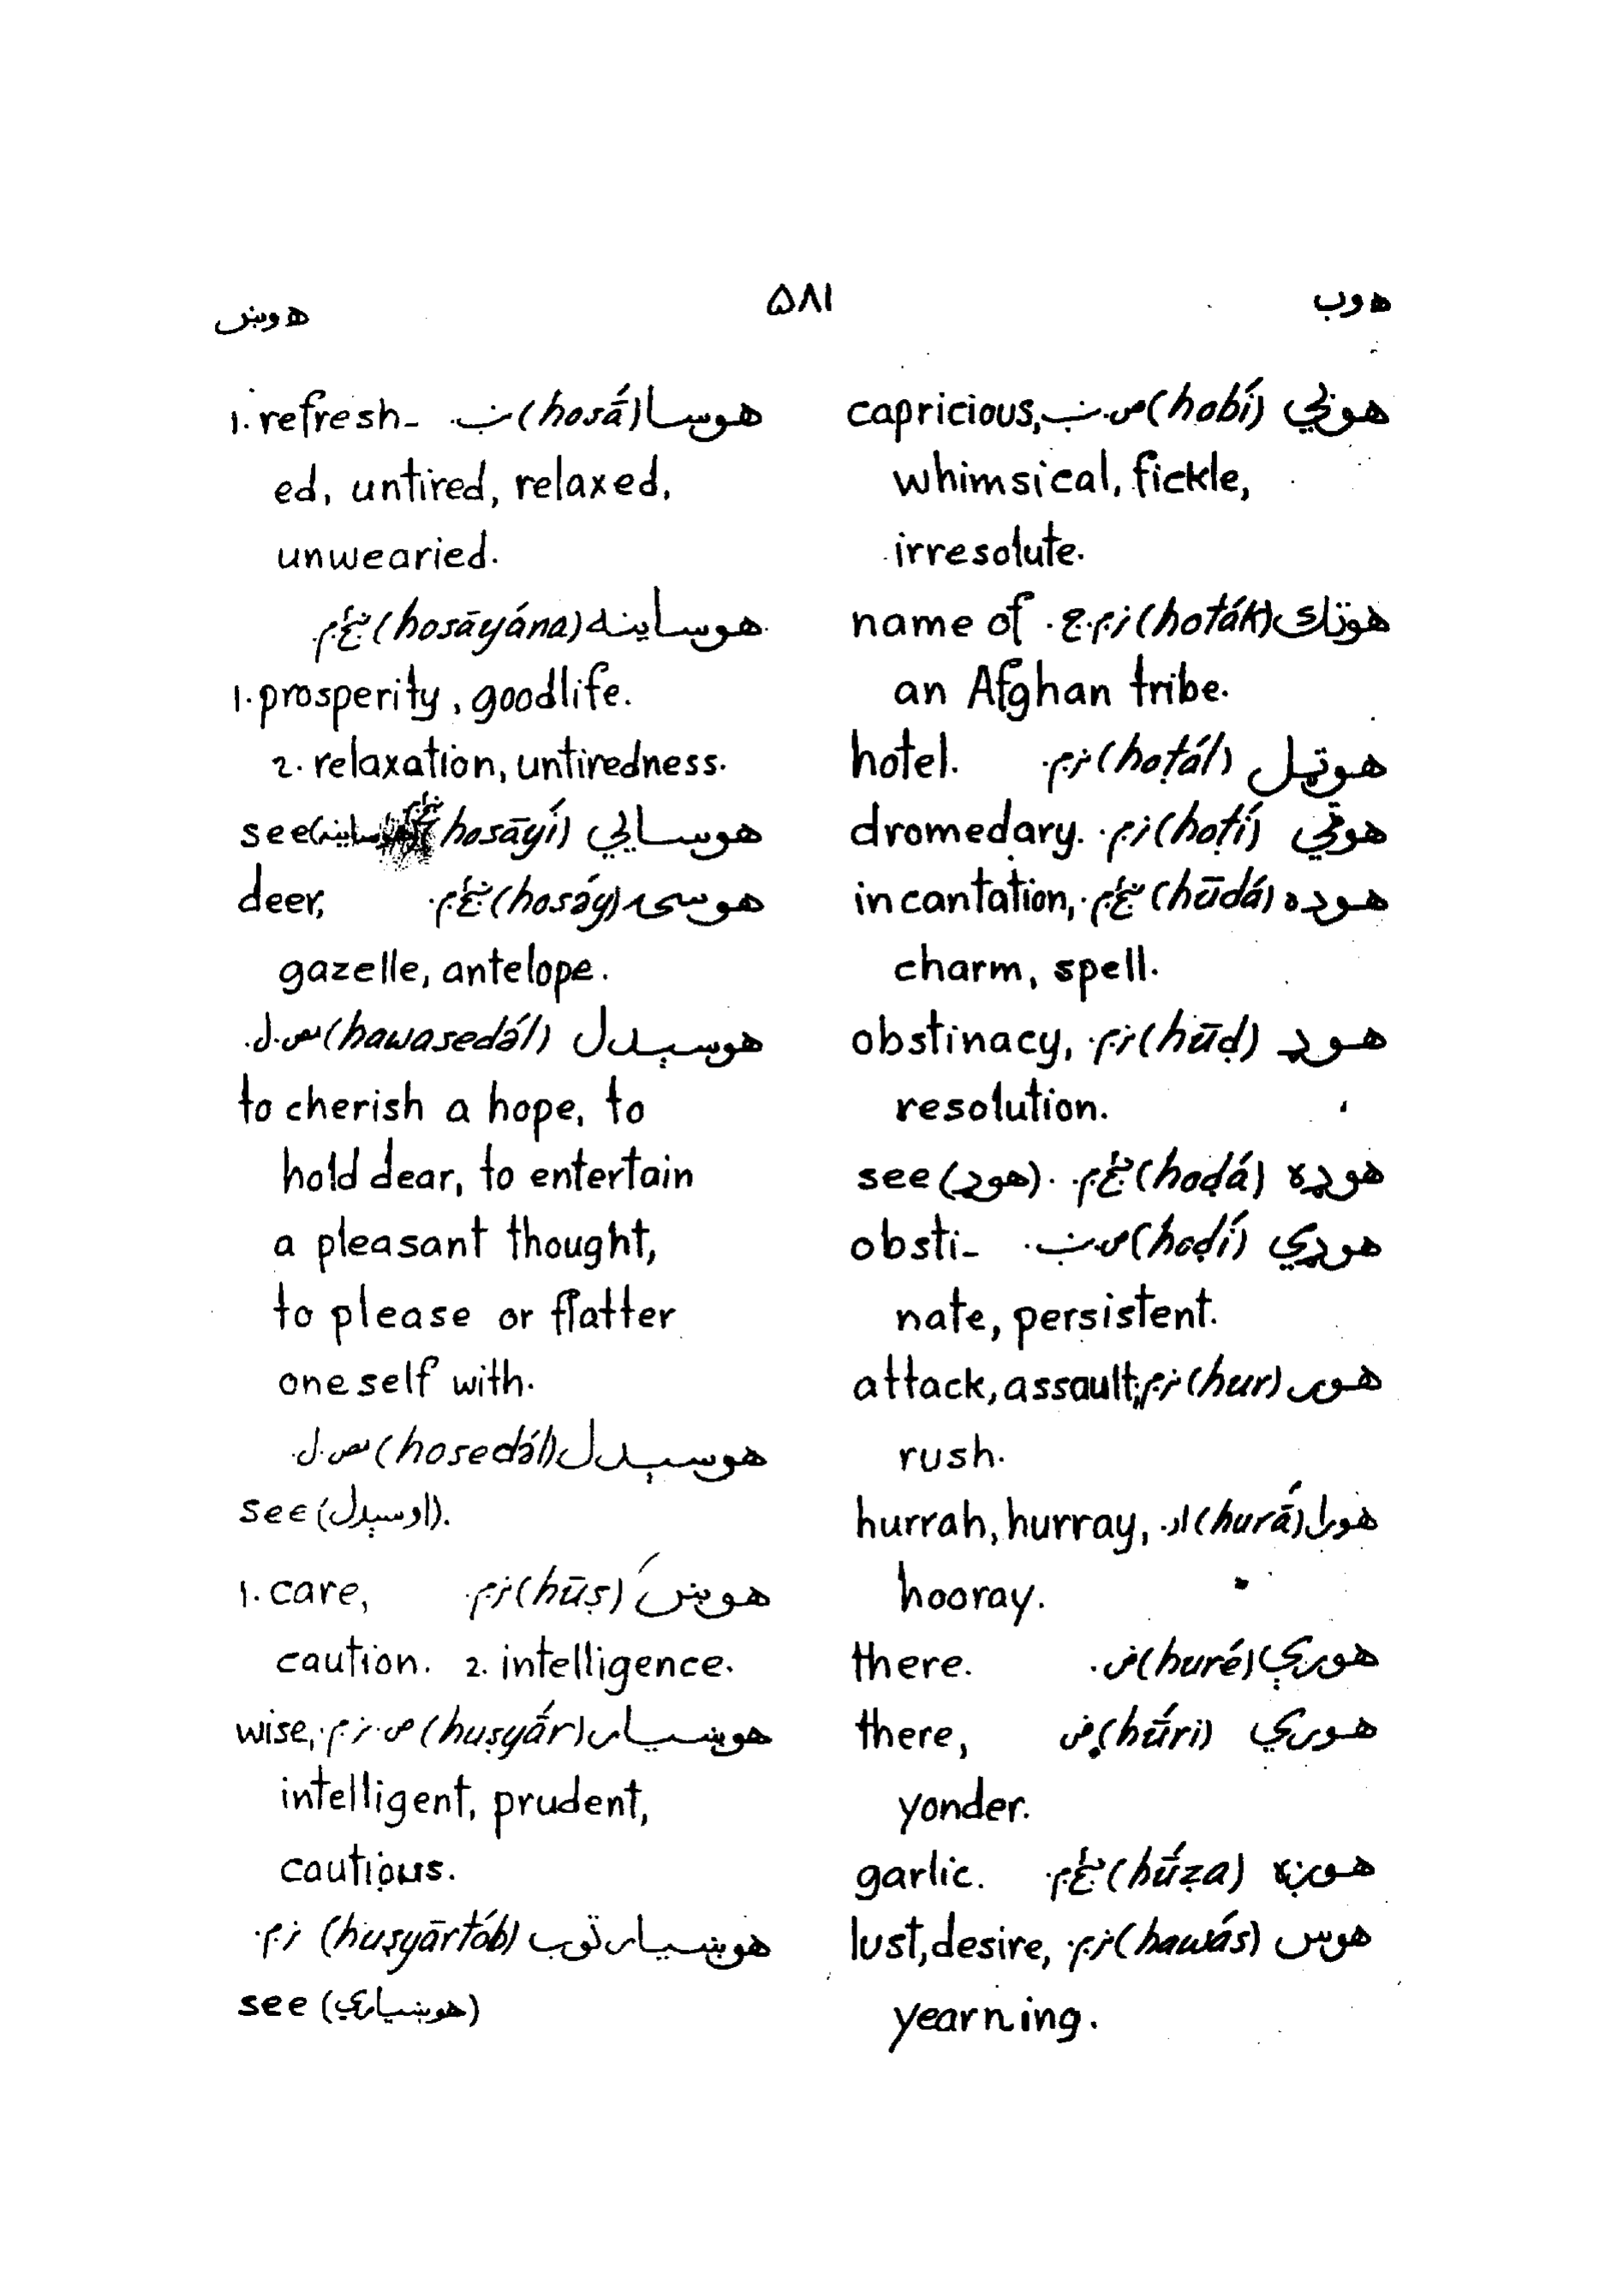 هوب ۵۸۱ هوښ
هوبي (hobí) ص.ب. capricious,
whimsical, fickle,
irresolute.
هوتک (hoták) نر.م.ج. name of
an Afghan tribe.
هوټل (hoṭál) نر.م. hotel.
هوټي (hoṭí) نر.م. dromedary.
هوده (hūdá) ښځ.م. incantation,
charm, spell.
هوډ (hūḍ) نر.م. obstinacy,
resolution.
هوډه (hoḍá) ښځ.م. see (هوډ).
هوډي (hoḍí) ص.ب. obsti-
nate, persistent.
هور (hur) نر.م. attack, assault,
rush.
هورا (hurā́) اد. hurrah, hurray,
hooray.
هورې (huré) ض. there.
هوري (hū́ri) ض. there,
yonder.
هوږه (hū́ẓa) ښځ.م. garlic.
هوس (hawás) نر.م. lust, desire,
yearning.
هوسا (hosā́) ب. 1. refresh-
ed, untired, relaxed,
unwearied.
هوساينه (hosāyána) ښځ.م.
1. prosperity, goodlife.
2. relaxation, untiredness.
هوسايي (hosāyí) see (هوساينه)
هوسۍ (hosə́y) ښځ.م. deer,
gazelle, antelope.
هوسېدل (hawasedə́l) مص.ل.
to cherish a hope, to
hold dear, to entertain
a pleasant thought,
to please or flatter
oneself with.
هوسېدل (hosedə́l) مص.ل.
see (اوسېدل).
هوښ (hūṣ) نر.م. 1. care,
caution. 2. intelligence.
هوښيار (huṣyā́r) ص.نر.م. wise,
intelligent, prudent,
cautious.
هوښيارتوب (huṣyārtób) نر.م.
see (هوښياري)